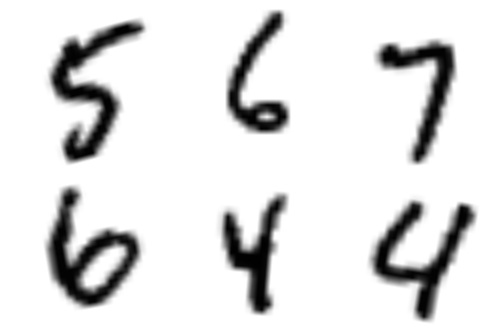 5 6 7
6 4 4